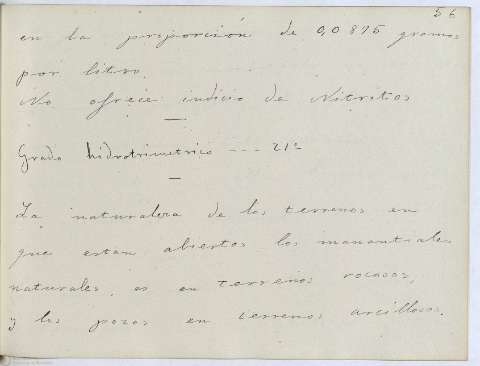 56
en la proporción de 0,0875 gramos
por litro.
No ofrece indicio de Nitritos
Grado hidrotrimetrico --- 21º
La naturaleza de los terrenos en
que estan abiertos los manantiales
naturales, es en terrenos rocosos,
y los pozos en terrenos arcillosos.